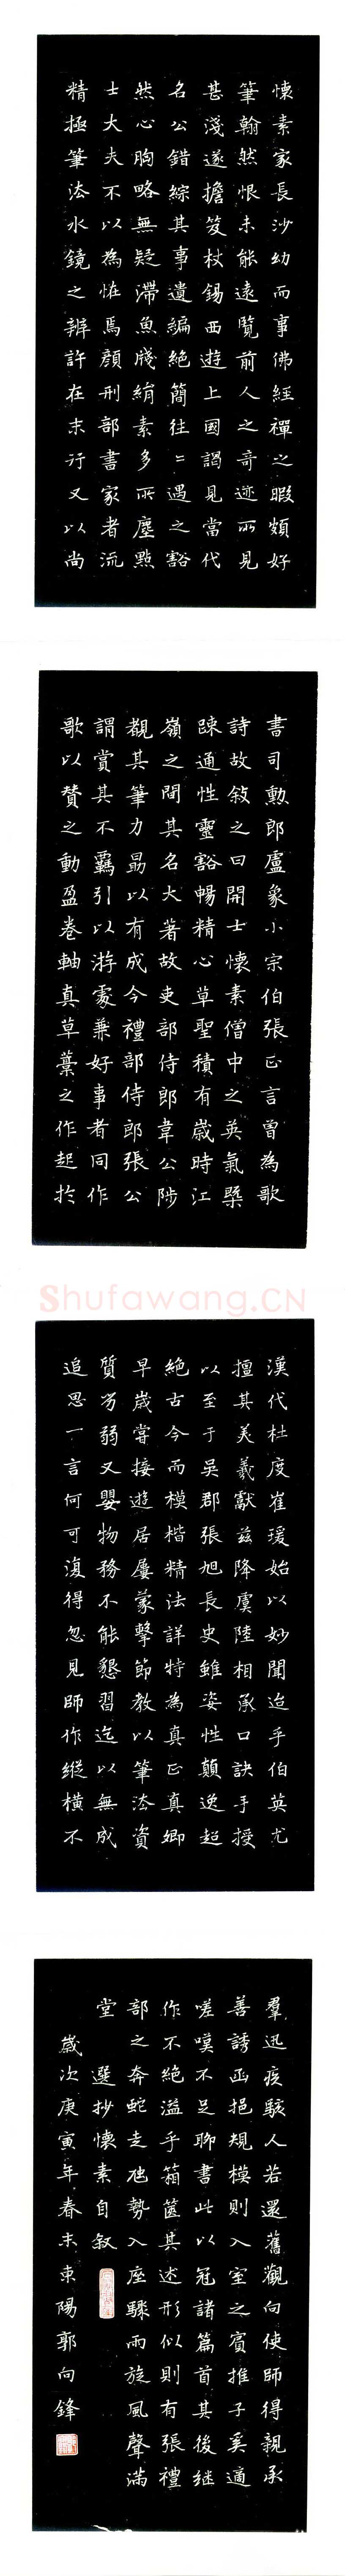 懷素家長沙幼而事佛經禪之暇頗好
筆翰然恨未能遠覽前人之奇迹所見
甚淺遂擔笈杖錫西遊上國謁見當代
名公錯綜其事遺編絶簡往〻遇之豁
然心胸略無疑滯魚牋絹素多所塵點
士大夫不以為恠焉顔刑部書家者流
精極筆法水鏡之辨許在末行又以尚
書司勲郎盧象小宗伯張正言曾為歌
詩故敘之曰開士懷素僧中之英氣槩
踈通性靈豁暢精心草聖積有歲時江
嶺之間其名大著故吏部侍郎韋公陟
覩其筆力勗以有成今禮部侍郎張公
謂賞其不羈引以游處兼好事者同作
歌以贊之動盈卷軸真草藁之作起於
Shufawang.CN
漢代杜度崔瑗始以妙聞迨乎伯英尤
擅其美羲獻茲降虞陸相承口訣手授
以至于吳郡張旭長史雖姿性顛逸超
絶古今而模楷精法詳特為真正真卿
早歲嘗接遊居屢蒙擊節教以筆法資
質劣弱又嬰物務不能懇習迄以無成
追思一言何可復得忽見師作縱橫不
羣迅疾駭人若還舊觀向使師得親承
善誘函挹規模則入室之賓推子奚適
嗟嘆不足聊書此以冠諸篇首其後继
作不絶溢乎箱篋其述形似則有張禮
部之奔蛇走虺勢入座驟雨旋風聲滿
堂 選抄懷素自敘
歲次庚寅年春末東陽郭向鋒